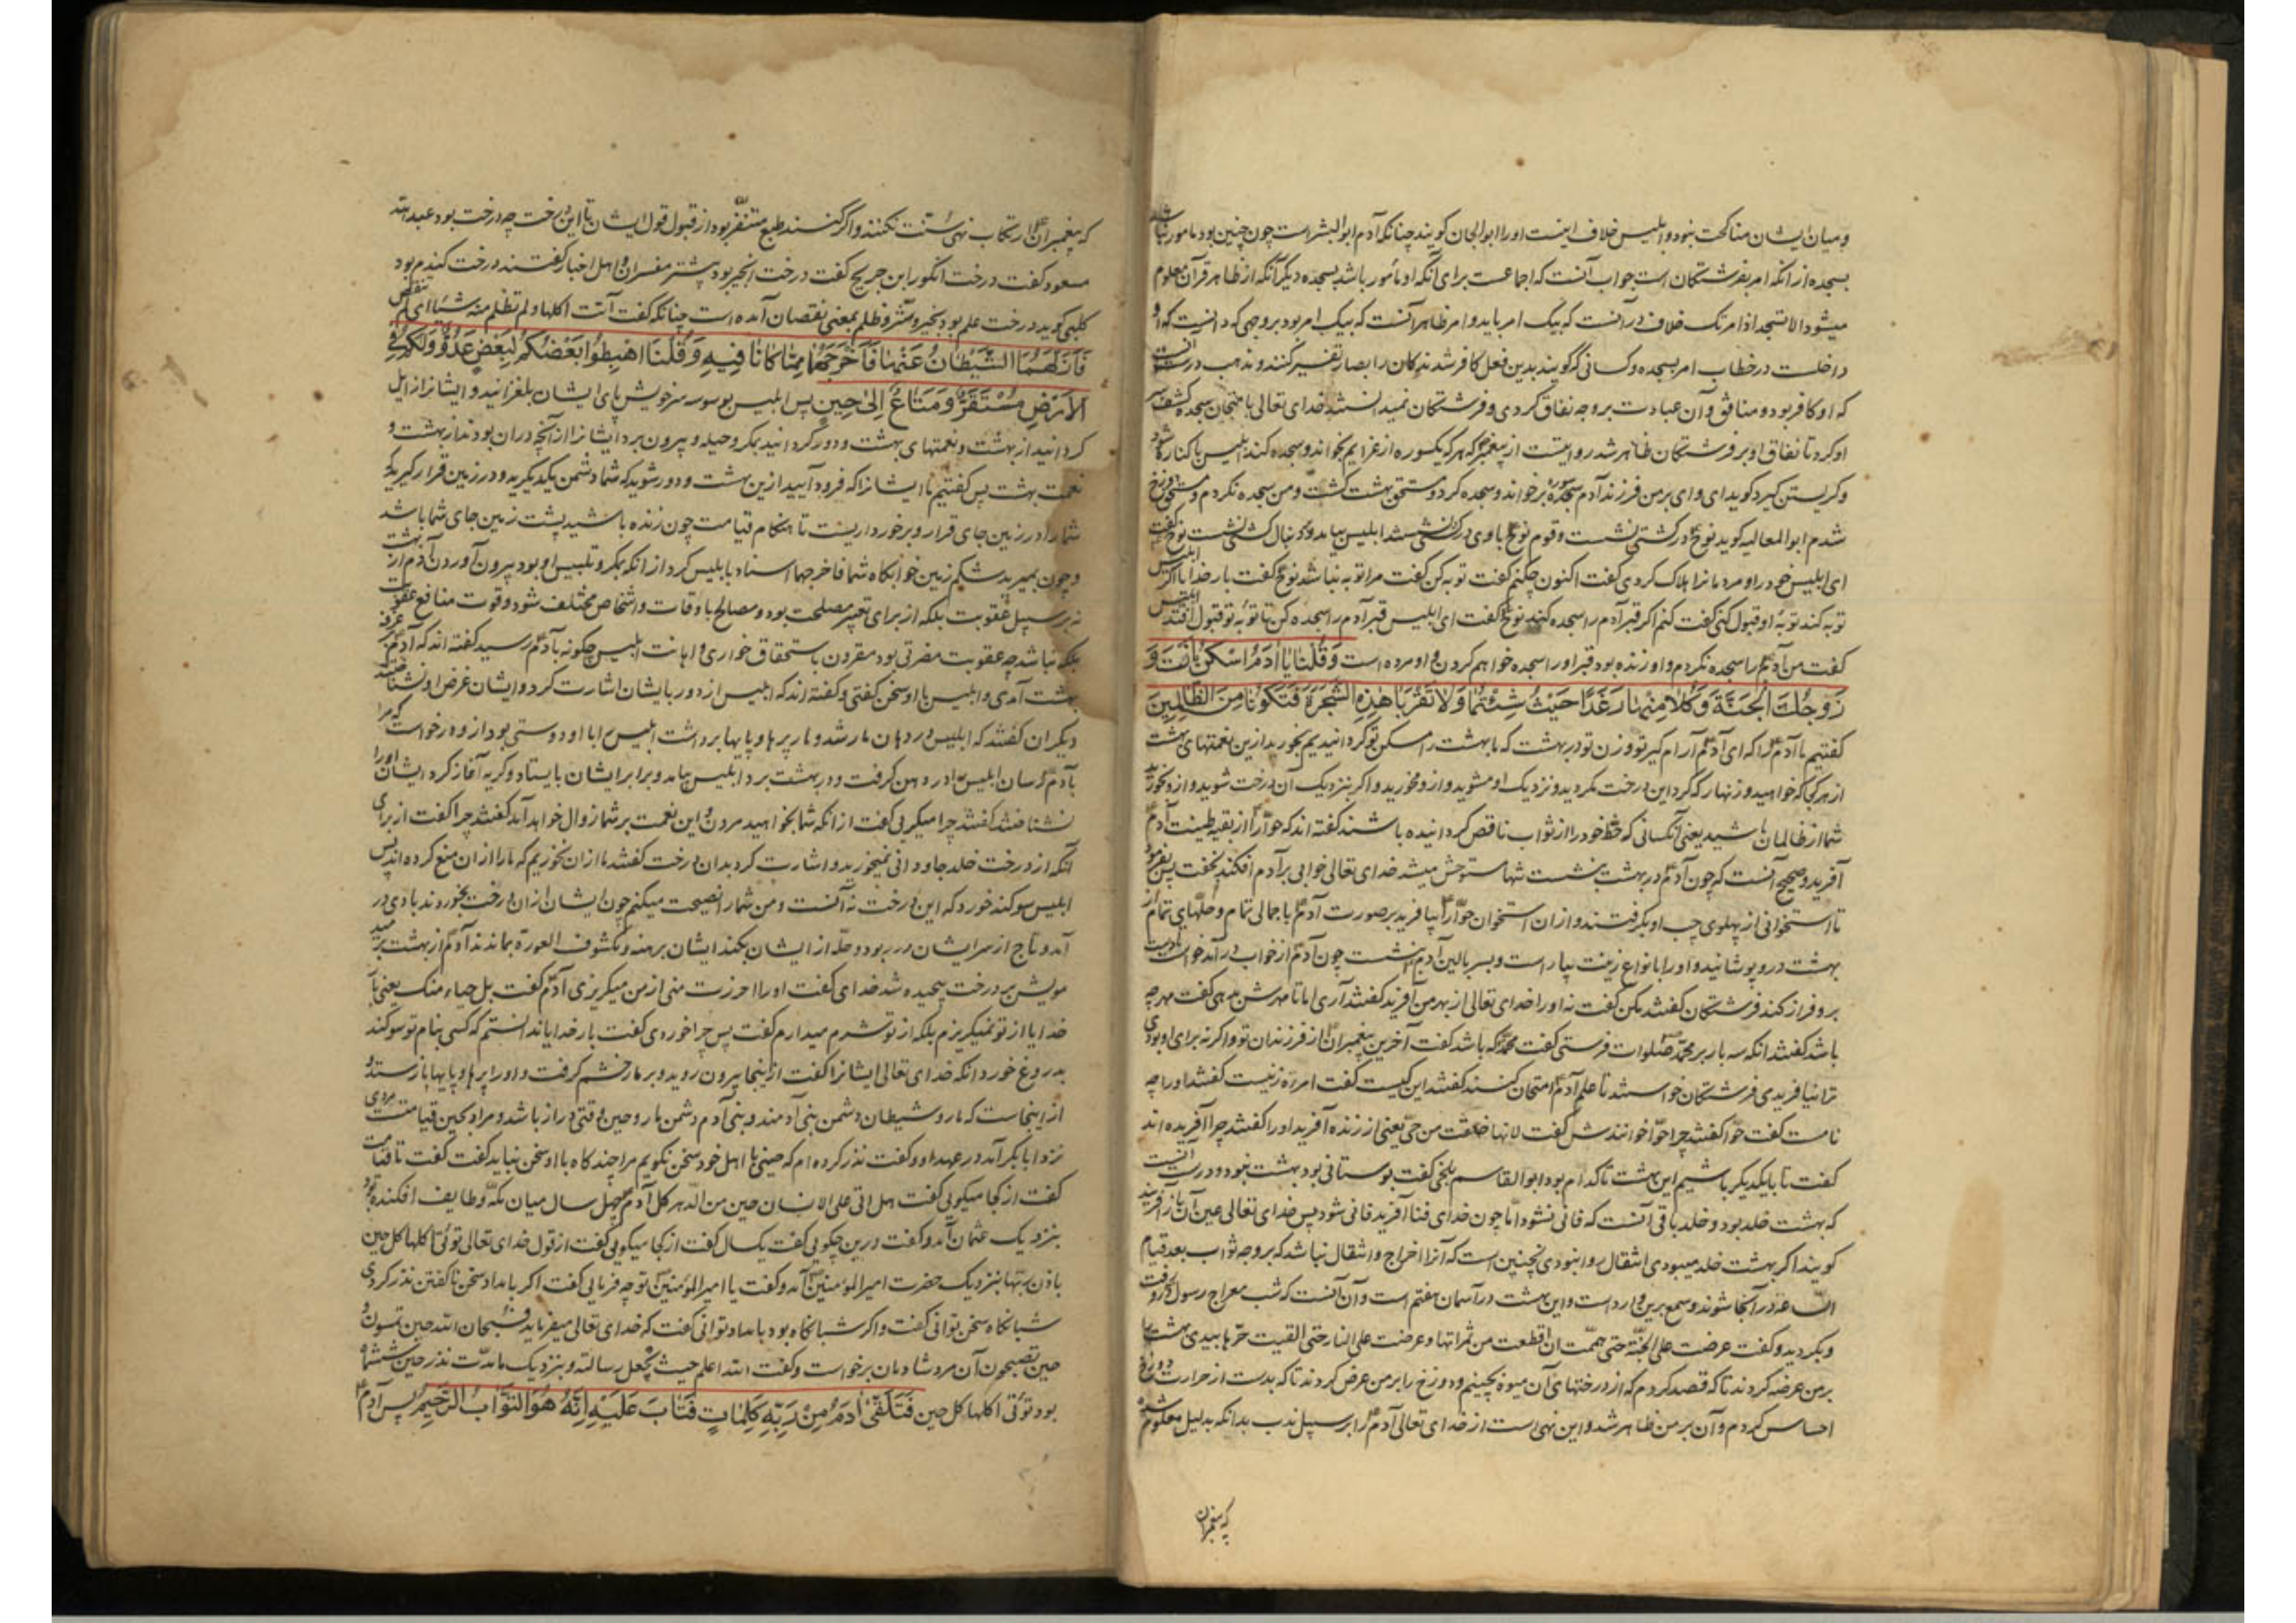 و میان ایشان مناکحت نبود و ابلیس خلاف اینست او را ابوالجان کویند چنانکه آدم ابوالبشر است چون چنین بود مامور نباشد
بسجده از آنکه امر بفرشتکان است جواب آنست که اجماعست برای آنکه او مأمور باشد بسجده دیکر آنکه از ظاهر قرآن معلوم
میشود الا تسجد اذ امرتک خلاف در آنست که بیک امر باید و امر ظاهر آنست که بیک امر بود بر وجهی که دانست که او
داخلست در خطاب امر بسجده و کسانی که کویند بدین فعل کافر شد کان را بصار تفسیر کنند و مذهب درست آنست
که او کافر بود و منافق و آن عبادت بر وجه نفاق کردی و فرشتکان نمیدانستند خدای تعالی بامتحان سجده کشف سر
او کرد تا نفاق او بر فرشتکان ظاهر شد روایتست از پیغمبر که هر که یکسوره از عزایم بخواند و سجده کند ابلیس با کناره شود
و کریستن کیرد کوید ای وای بر من فرزند آدم سوره سجده بر خواند و سجده کرد و مستحق بهشت کشت و من سجده نکردم و مستحق دوزخ
شدم ابوالعالیه کوید نوح در کشتی نشست و قوم نوح با وی در کشتی نشستند ابلیس بیامد و بر دنبال کشتی نشست نوح گفت
ای ابلیس خود را و مردمان را هلاک کردی گفت اکنون چکنم گفت توبه کن گفت مرا توبه نباشد نوح گفت بار خدایا اکر ابلیس
توبه کند توبهٔ او قبول کنی گفت کنم اکر قبر آدم را سجده کند نوح گفت ای ابلیس قبر آدم را سجده کن تا توبهٔ تو قبول افتد ابلیس
کفت من آدم را سجده نکردم و او زنده بود قبر او را سجده خواهم کردن و او مرده است وَقُلْنَا یَا آدَمُ اسْکُنْ اَنْتَ وَ
زَوْجُکَ الْجَنَّةَ وَکُلَا مِنْهَا رَغَدًا حَیْثُ شِئْتُمَا وَلَا تَقْرَبَا هٰذِهِ الشَّجَرَةَ فَتَکُونَا مِنَ الظَّالِمِینَ
کفتیم ما آدم را که ای آدم آرام کیر تو و زن تو در بهشت که ما بهشت را مسکن تو کردانیدیم بخورید ازین نعمتهای بهشت
از هر کجا که خواهید و زنهار که کرد این درخت مکردید و نزدیک او مشوید و ازو مخورید و اکر بنزدیک آن درخت شوید و ازو بخورید
شما از ظالمان باشید یعنی آنکسانی که حظ خود را از ثواب ناقص کردانیده باشند کفته اند که حوا را از بقیه طینت آدم
آفرید و صحیح آنست که چون آدم در بهشت بنشست تنها مستوحش میشد خدای تعالی خوابی بر آدم افکند بخفت پس بفرمود
تا استخوانی از پهلوی چپ او بکرفتند و از ان استخوان حوا را بیافرید بر صورت آدم با جمالی تمام و حلهای تمام از
بهشت درو پوشانید و او را بانواع زینت بیاراست و بسر بالین آدم بنشست چون آدم از خواب در آمد خواست تا دست
برو فراز کند فرشتکان کفتند مکن کفت نه او را خدای تعالی از بهر من آفرید کفتند آری اما تا مهرش بدهی کفت مهر چه
باشد کفتند انکه سه بار بر محمد صلوات فرستی کفت محمد که باشد کفت آخرین پیغمبران از فرزندان تو و اکر نه برای او بودی
ترا نیافریدی فرشتکان خواستند تا علم آدم امتحان کنند کفتند این کیست کفت امرءة زنیست کفتند او را چه
نامست کفت حوا کفتند چرا حوا خوانندش کفت لانها خلقت من حی یعنی از زنده آفرید او را کفتند چرا آفریده اند
کفت تا بایکدیکر باشیم این بهشت تا کدام بود ابوالقاسم بلخی کفت بوستانی بود بهشت نبود و درست آنست
که بهشت خلد بود و خلد باقی آنست که فانی نشود اما چون خدای فنا آفرید فانی شود پس خدای تعالی عین آن باز آفریند
کویند اکر بهشت خلد میبودی انتقال روا نبودی نچنین است که آنرا اخراج و انتقال نباشد که بر وجه ثواب بعد قیام
الساعه در آنجا شوند و سمع برین وارد است و این بهشت در آسمان هفتم است و آن آنست که شب معراج رسول
و بکردید و کفت عرضت علی الجنّة حتی هممت ان اقطعت من ثمراتها و عرضت علی النار حتی القیت حرّها بیدی بهشت را
بر من عرضه کردند تا که قصد کردم که از درختهای آن میوه بچینم و دوزخ را بر من عرض کردند تا که بدست از حرارت دوزخ
احساس کردم و آن بر من ظاهر شد و این نهی است از خدای تعالی آدم را بر سبیل ندب بدانکه بدلیل معلوم شده
که پیغمبران
که پیغمبران ارتکاب نهی نکنند و اکر کنند طبع متنفر بود از قبول قول ایشان تا این درخت چه درخت بود عبد الله
مسعود کفت درخت انکور ابن جریج کفت درخت انجیر بود بیشتر مفسران و اهل اخبار کفتند درخت کندم بود
کلبی کوید درخت علم بود بخیر و شر و ظلم بمعنی نقصان آمده است چنانکه کفت آتت اکلها ولم تظلم منه شیئا ای لم تنقص
فَاَزَلَّهُمَا الشَّیْطَانُ عَنْهَا فَاَخْرَجَهُمَا مِمَّا کَانَا فِیهِ وَقُلْنَا اهْبِطُوا بَعْضُکُمْ لِبَعْضٍ عَدُوٌّ وَلَکُمْ فِی
الْاَرْضِ مُسْتَقَرٌّ وَمَتَاعٌ اِلٰی حِینٍ پس ابلیس بوسوسه خویش پای ایشان بلغزانید و ایشانرا زایل
کردانید از بهشت و نعمتهای بهشت و دور کردانید بمکر و حیله و بیرون برد ایشانرا از آنچه دران بودند از بهشت و
نعمت بهشت پس کفتیم ما ایشانرا که فرود آیید ازین بهشت و دور شوید که شما دشمن یکدیکرید و در زمین قرار کیرید که
شما را در زمین جای قرار و برخورداریست تا هنکام قیامت چون زنده باشید پشت زمین جای شما باشد
و چون بمیرید شکم زمین خوابکاه شما فاخرجهما اسناد با ابلیس کرد از انکه بمکر و تلبیس او بود بیرون آوردن آدم از بهشت
نه بر سبیل عقوبت بلکه از برای تغیر مصلحت بود و مصالح باوقات و اشخاص مختلف شود و فوت منافع عقوبت
بلکه نباشد چه عقوبت مضرتی بود مقرون باستحقاق خواری و اهانت ابلیس چکونه بآدم رسید کفته اند که آدم بر غرفه
بهشت آمدی و ابلیس با او سخن کفتی و کفته اند که ابلیس از دور بایشان اشارت کرد و ایشان غرض او بشناختند
دیکران کفتند که ابلیس در دهان مار شد و مار پرها و پایها برداشت ابلیس را با او دوستی بود ازو درخواست که مرا
بآدم رسان ابلیس را در دهن کرفت و در بهشت برد ابلیس بیامد و برابر ایشان بایستاد و کریه آغاز کرد ایشان او را
نشناختند کفتند چرا میکریی کفت از انکه شما بخواهید مردن و این نعمت بر شما زوال خواهد آمد کفتند چرا کفت از برای
آنکه از درخت خلد جاودانی نمیخورید و اشارت کرد بدان درخت کفتند ما ازان نخوریم که ما را ازان منع کرده اند پس
ابلیس سوکند خورد که این درخت نه آنست و من شما را نصیحت میکنم چون ایشان ازان درخت بخوردند بادی در
آمد و تاج از سر ایشان در ربود و حله از ایشان بکند ایشان برهنه و مکشوف العورة بماندند آدم از بهشت برمید
مویش بر درخت پیچیده شد خدای کفت او را افررت منی از من میکریزی آدم کفت بل حیاء منک یعنی
خدایا از تو نمیکریزم بلکه از تو شرم میدارم کفت پس چرا خوردی کفت بار خدایا ندانستم که کسی بنام تو سوکند
بدروغ خورد آنکه خدای تعالی ایشانرا کفت از اینجا بیرون روید و بر مار خشم کرفت و او را پرها و پایها باز ستد و
از اینجاست که مار و شیطان دشمن بنی آدمند و بنی آدم دشمن مار و حین وقتی دراز باشد و مراد بحین قیامت مردی
نزد ابابکر آمد در عهد او و کفت نذر کرده ام که حینی با اهل خود سخن نکویم مرا چند کاه با او سخن نباید کفت کفت تا قیامت
کفت از کجا میکویی کفت هل اتی علی الانسان حین من الدهر کل آدم چهل سال میان مکه و طایف افکنده بود
بنزدیک عثمان آمد و کفت درین چکویی کفت یکسال کفت از کجا میکویی کفت از قول خدای تعالی تؤتی اکلها کل حین
باذن ربها بنزدیک حضرت امیرالمؤمنین آمد و کفت یا امیرالمؤمنین تو چه فرمایی کفت اکر بامداد سخن ناکفتن نذر کردی
شبانکاه سخن توانی کفت و اکر شبانکاه بود بامداد توانی کفت که خدای تعالی میفرماید فسبحان الله حین تمسون و
حین تصبحون آن مرد شادمان برخواست و کفت الله اعلم حیث یجعل رسالته و بنزدیک ما مدّت نذر حین شش ماه
بود تؤتی اکلها کل حین فَتَلَقّٰی آدَمُ مِنْ رَبِّهِ کَلِمَاتٍ فَتَابَ عَلَیْهِ اِنَّهُ هُوَ التَّوَّابُ الرَّحِیمُ پس آدم